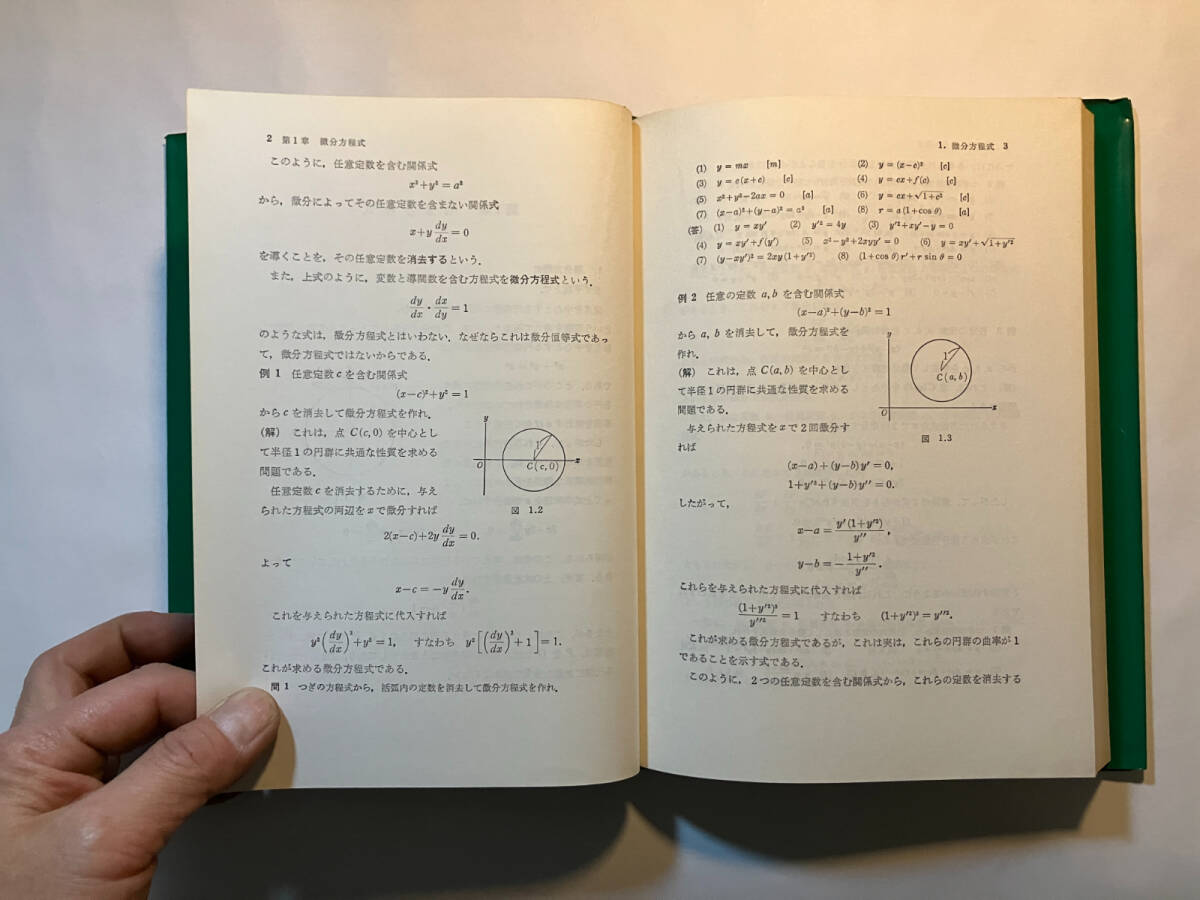 2 第1章 微分方程式
このように，任意定数を含む関係式
x²+y²=a²
から，微分によってその任意定数を含まない関係式
x+y dy/dx=0
を導くことを，その任意定数を消去するという．
また，上式のように，変数と導関数を含む方程式を微分方程式という．
dy/dx・dx/dy=1
のような式は，微分方程式とはいわない．なぜならこれは微分恒等式であっ
て，微分方程式ではないからである．
例1 任意定数 c を含む関係式
(x−c)²+y²=1
から c を消去して微分方程式を作れ．
(解) これは，点 C(c, 0) を中心とし
て半径1の円群に共通な性質を求める
問題である．
任意定数 c を消去するために，与え
られた方程式の両辺を x で微分すれば
y
1
O
C(c, 0)
x
図 1.2
2(x−c)+2y dy/dx=0.
よって
x−c=−y dy/dx.
これを与えられた方程式に代入すれば
y²(dy/dx)²+y²=1, すなわち y²[(dy/dx)²+1]=1.
これが求める微分方程式である．
問1 つぎの方程式から，括弧内の定数を消去して微分方程式を作れ．
1. 微分方程式 3
(1) y=mx [m] (2) y=(x−c)² [c]
(3) y=c(x+c) [c] (4) y=cx+f(c) [c]
(5) x²+y²−2ax=0 [a] (6) y=cx+√1+c² [c]
(7) (x−a)²+(y−a)²=a² [a] (8) r=a(1+cos θ) [a]
(答) (1) y=xy′ (2) y′²=4y (3) y′²+xy′−y=0
(4) y=xy′+f(y′) (5) x²−y²+2xyy′=0 (6) y=xy′+√1+y′²
(7) (y−xy′)²=2xy(1+y′²) (8) (1+cos θ)r′+r sin θ=0
例2 任意の定数 a, b を含む関係式
(x−a)²+(y−b)²=1
から a, b を消去して，微分方程式を
作れ．
(解) これは，点 C(a, b) を中心とし
て半径1の円群に共通な性質を求める
問題である．
与えられた方程式を x で2回微分す
れば
y
1
C(a, b)
O
x
図 1.3
(x−a)+(y−b)y′=0,
1+y′²+(y−b)y′′=0.
したがって，
x−a=y′(1+y′²)/y′′,
y−b=−(1+y′²)/y′′.
これらを与えられた方程式に代入すれば
(1+y′²)³/y′′²=1 すなわち (1+y′²)³=y′′².
これが求める微分方程式であるが，これは実は，これらの円群の曲率が1
であることを示す式である．
このように，2つの任意定数を含む関係式から，これらの定数を消去する